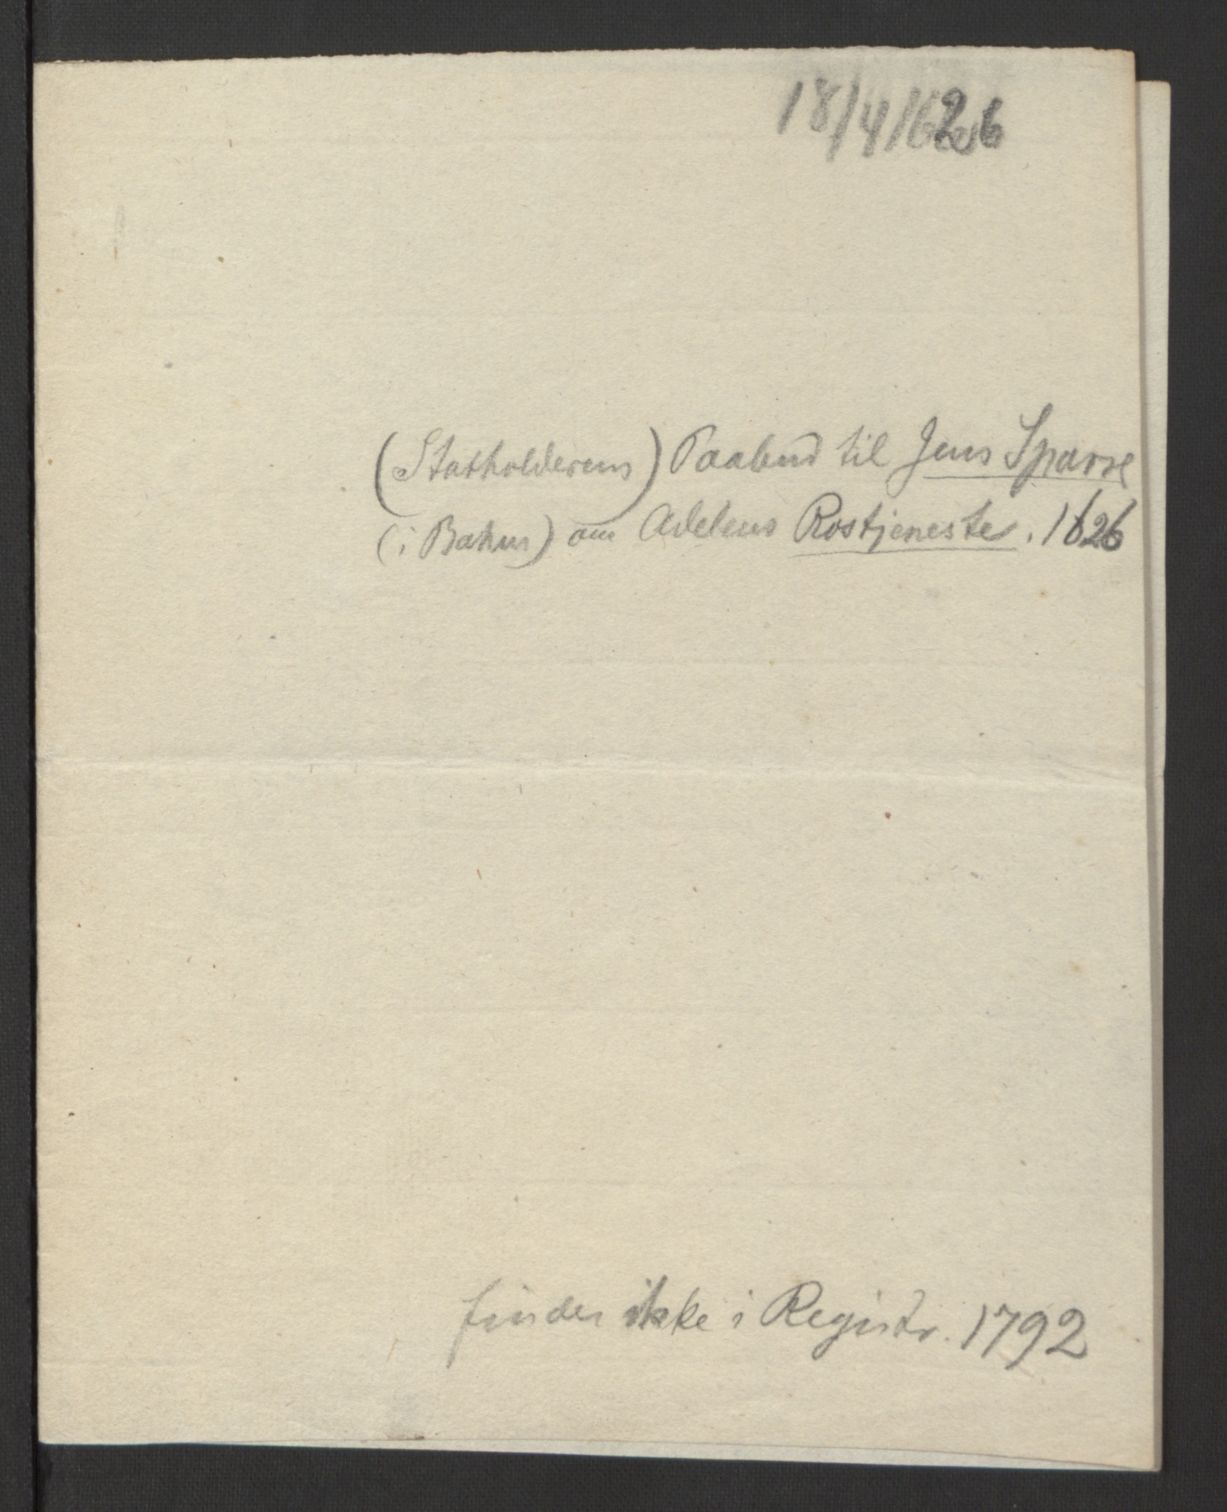 18/4/1626
(Statholderens) Paabud til Jens Sparre
(i Bahus) om Adelens Rostjeneste. 1626
findes ikke i Registr. 1792